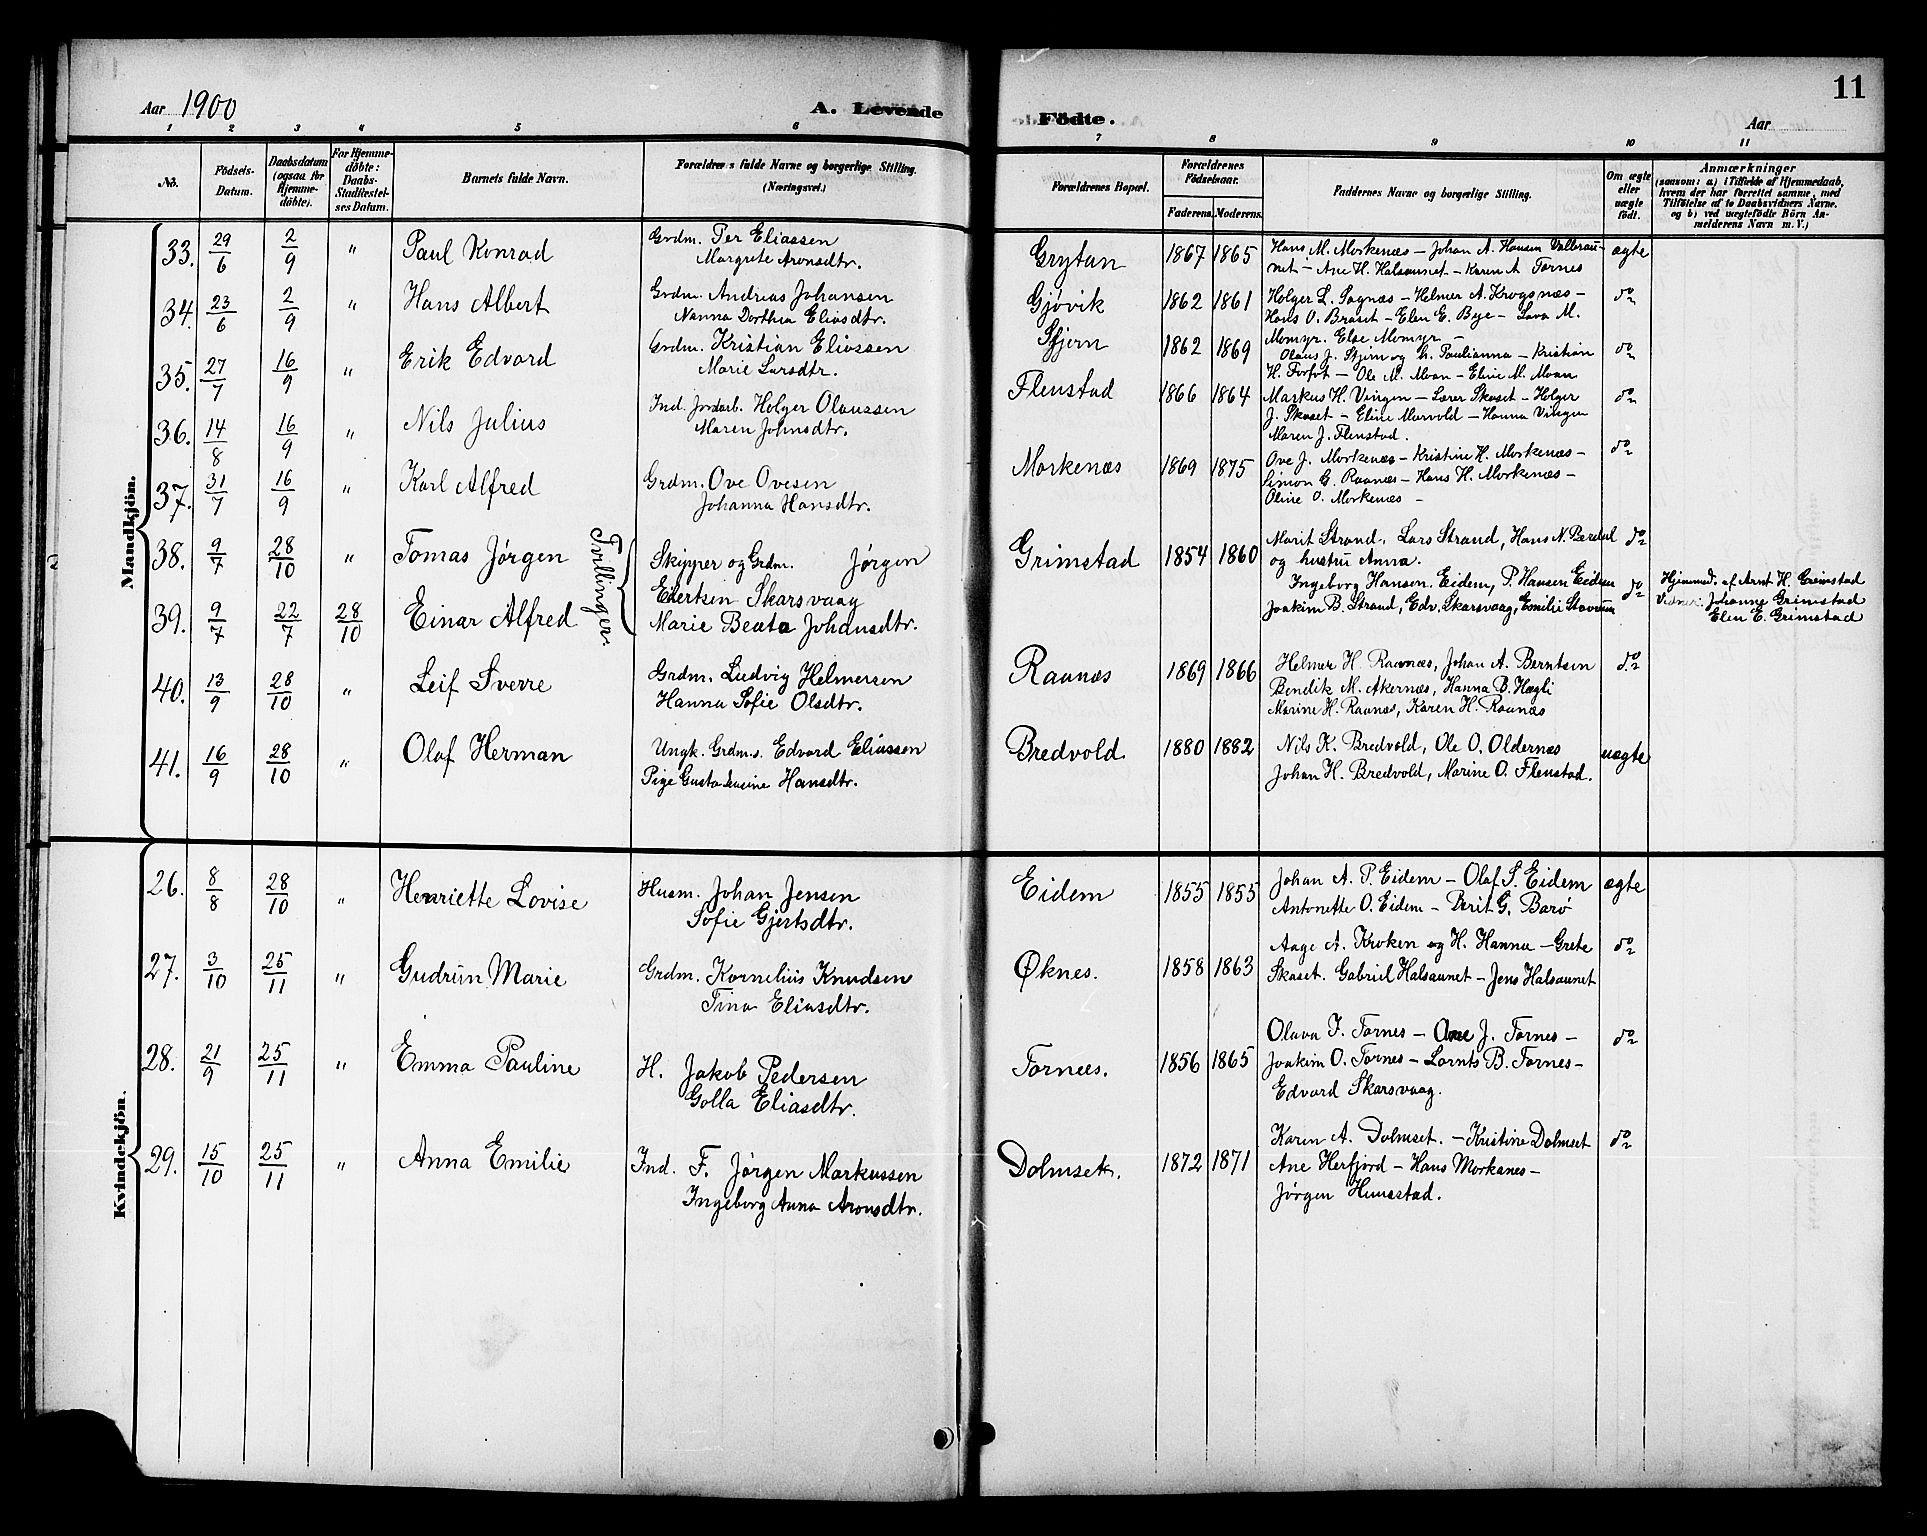 Aar 1900
A. Levende
Födte.
11
Aar
1 2 3 4 5 6 7 8 9 10 11
No.
Födsels-Datum.
Daabsdatum (ogsaa for Hjemme-döbte).
For Hjemme-döbte: Daabs-Stadfæstel-ses Datum.
Barnets fulde Navn.
Forældrenes fulde Navne og borgerlige Stilling. (Næringsvei.)
Forældrenes Bopæl.
Forældrenes Födselsaar.
Faderens. Moderens.
Faddernes Navne og borgerlige Stilling.
Om ægte eller uægte födt.
Anmærkninger
(saasom: a) i Tilfælde af Hjemmedaab, hvem der har forrettet samme, med Tilföielse af to Daabsvidners Navne. og b) ved uægtefödte Börn An-melderens Navn m. V.)
Mandkjön.
33. 29/6 2/9 " Paul Konrad
Grdm. Per Eliassen
Margrete Aronsdtr.
Grytan 1867 1865
Hans M. Morkenæs – Johan A. Hansen Vallerau-
net – Ane H. Halsaunet – Karen A. Tornes
ægte
34. 23/6 2/9 " Hans Albert
Grdm. Andreas Johansen
Nanna Dorthea Eliasdtr.
Gjøvik 1862 1861
Holger L. Sagnæs – Helmer A. Krogsnæs –
Hans O. Braset – Elen E. Bye – Lava M.
Momyr. Else Momyr –
do
35. 27/7 16/9 " Erik Edvard
Grdm. Kristian Eliassen
Marie Larsdtr.
Stjern 1862 1869
Olaus J. Stjern og h. Paulianna – Kristian
H. Forfot – Ole M. Moan – Eline M. Moan
do
36. 14/8 16/9 " Nils Julius
Ind. Jordarb. Holger Olaussen
Maren Johnsdtr.
Flenstad 1866 1864
Markus H. Vingen – Lærer Skaset – Holger
J. Skaset – Eline Murvold – Hanna Vingen
Maren J. Flenstad.
do
37. 31/7 16/9 " Karl Alfred
Grdm. Ove Ovesen
Johanna Hansdtr.
Morkenæs 1869 1875
Ove J. Morkenæs – Kristine H. Morkenæs –
Simon G. Raanæs – Hans H. Morkenæs –
Oline O. Morkenæs –
do
38. 9/7 28/10 " Tomas Jørgen
Tvillinger.
Skipper og Grdm. Jørgen
Grimstad 1854 1860
Marit Strand, Lars Strand, Hans N.
og hustru Anna.
do
39. 9/7 22/7 28/10 Einar Alfred
Edertsen Skarsvaag
Marie Beata Johansdtr.
Ingeborg Hansen. Eidem, P. Hansen Eidem
Joakim B. Strand, Edv. Skarsvaag, Emilie Stavrum
do
Hjemmed. af Arnt H. Grimstad
Vidner: Johanne Grimstad
Elen E. Grimstad
40. 13/9 28/10 " Leif Sverre
Grdm. Ludvig Helmersen
Hanna Sofie Olsdtr.
Raanæs 1869 1866
Helmer H. Raanæs, Johan A. Berntsen
Bendik M. Akernæs, Hanna B. Hægli
Marine H. Raanæs, Karen H. Raanæs
do
41. 16/9 28/10 " Olaf Herman
Ungk. Grdm.s. Edvard Eliassen
Pige Gusta Hansdtr.
Bredvold 1880 1882
Nils K. Bredvold, Ole O. Oldernæs
Johan H. Bredvold, Marine O. Flenstad.
uægte
Kvindekjön.
26. 8/8 28/10 " Henriette Lovise
Husm. Johan Jensen
Sofie Gjertsdtr.
Eidem 1855 1855
Johan A. P. Eidem – Olaf S. Eidem
Antonette O. Eidem – Berit G. Barø
ægte
27. 3/10 25/11 " Gudrun Marie
Grdm. Kornelius Knudsen
Tina Eliasdtr.
Øknes. 1858 1863
Aage A. Kroken og H. Hanna – Grete
Skaset. Gabriel Halsaunet – Jens Halsaunet
do
28. 21/9 25/11 " Emma Pauline
H. Jakob Pedersen
Golla Eliasdtr.
Tornæs. 1856 1865
Olava J. Tornes – Ane J. Tornes –
Joakim O. Tornes – Lornts B. Tornes –
Edvard Skarsvaag.
do
29. 15/10 25/11 " Anna Emilie
Ind. F. Jørgen Markussen
Ingeborg Anna Aronsdtr.
Dolmset. 1872 1871
Karen A. Dolmset. – Kristine Dolmset
Ane Herfjord – Hans Morkanes –
Jørgen Humstad.
do